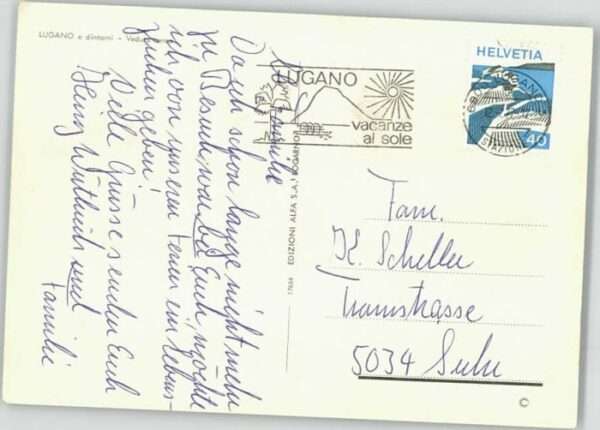 LUGANO e dintorni - Vedu
Familie
Da ich schon lange nicht mehr
zu Besuch war bei Euch, möchte
ich von unseren Ferien ein Lebens-
zeichen geben!
Viele Grüsse senden Euch
Heinz Wüthrich und
Familie
LUGANO
vacanze
al sole
HELVETIA
40
LUGANO
EDIZIONI ALFA S.A., LOCARNO
17654
Fam.
K. Scheller
Tramstrasse
5034 Suhr
©